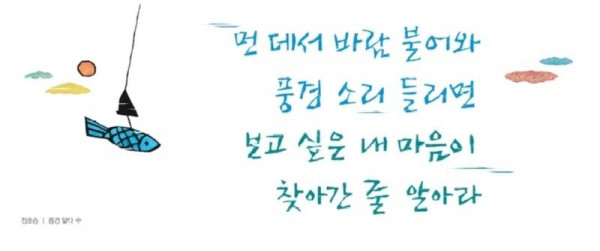 먼 데서 바람 불어와
풍경 소리 들리면
보고 싶은 내 마음이
찾아간 줄 알아라
정호승 | 풍경 달다 中